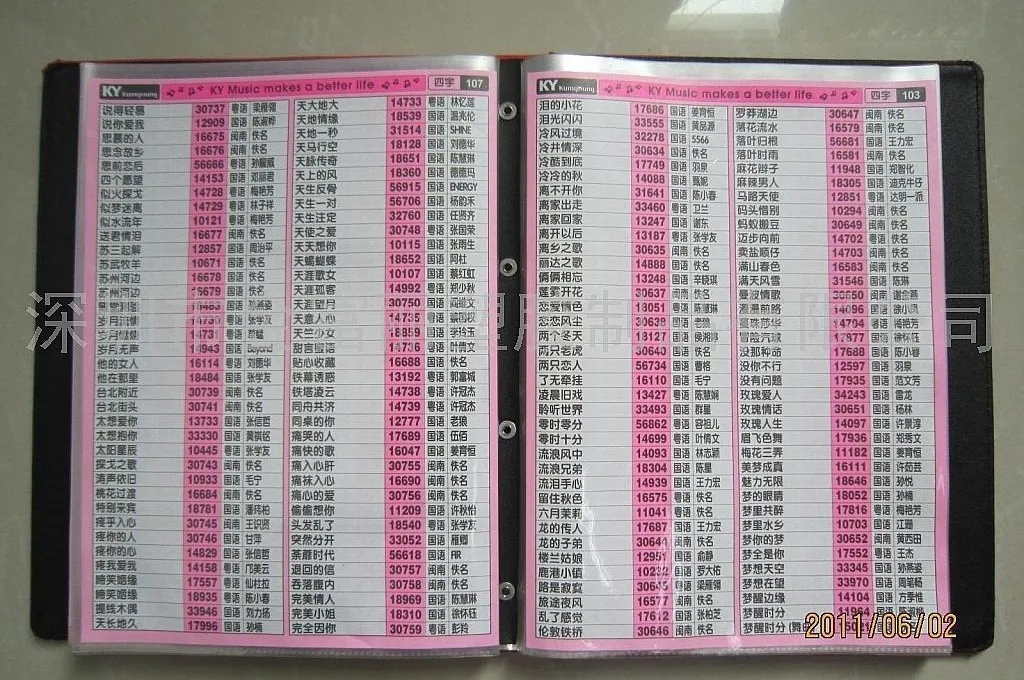 KY Kuangyung KY Music makes a better life 四字 107
说得轻易 30737 粤语 梁雁翎
说你爱我 12909 国语 陈淑桦
思慕的人 16675 闽南 佚名
思念故乡 16676 闽南 佚名
思前恋后 56666 粤语 孙耀威
四个愿望 14153 国语 邓丽君
似火探戈 14728 粤语 梅艳芳
似梦迷离 14729 粤语 林子祥
似水流年 10121 粤语 梅艳芳
送君情泪 16677 闽南 佚名
苏三起解 12857 国语 周治平
苏武牧羊 10671 国语 佚名
苏州河边 16678 国语 佚名
苏州河边 国语 佚名
岁月无声 14943 国语 Beyond
他的女人 16114 粤语 刘德华
他在那里 18484 国语 张学友
台北附近 30739 闽南 佚名
台北街头 30741 闽南 佚名
太想爱你 13733 国语 张信哲
太想抱你 33330 国语 黄祺铭
太阳星辰 10445 粤语 张学友
探戈之歌 30743 闽南 佚名
涛声依旧 10933 国语 毛宁
桃花过渡 16684 闽南 佚名
特别来宾 18781 国语 潘玮柏
疼乎入心 30745 闽南 王识贤
疼你的人 30746 国语 甘萍
疼你的心 14829 国语 张信哲
疼我爱我 14158 粤语 邝美云
啼笑姻缘 17557 粤语 仙杜拉
啼笑姻缘 18935 粤语 陈小春
提线木偶 33946 国语 刘力扬
天长地久 17996 国语 孙楠
天大地大 14733 粤语 林忆莲
天地情缘 18539 国语 温兆伦
天地一秒 31514 国语 SHINE
天马行空 18128 国语 刘德华
天脉传奇 18651 国语 陈慧琳
天上的风 18360 国语 德德玛
天生反骨 56915 国语 ENERGY
天生一对 56706 国语 杨韵禾
天生注定 32760 国语 任贤齐
天使之爱 30748 粤语 张国荣
天天想你 10115 国语 张雨生
天蝎蝴蝶 18652 国语 阿杜
天涯歌女 10107 国语 蔡红虹
天涯孤客 14992 粤语 郑少秋
天涯望月 30750 国语
天意人心 14735 粤语
天竺少女 18859 国语 李玲玉
甜言蜜语 14736 粤语 叶倩文
贴心收藏 16688 闽南 佚名
铁幕诱惑 13192 粤语 郭富城
铁塔凌云 14738 粤语 许冠杰
同舟共济 14739 粤语 许冠杰
同桌的你 12777 国语 老狼
痛哭的人 17689 国语 伍佰
痛快的歌 16047 国语 姜育恒
痛入心肝 30755 闽南 佚名
痛袜入心 16690 闽南 佚名
痛心的爱 30756 闽南 佚名
偷偷想你 11209 国语 许秋怡
头发乱了 18540 粤语 张学友
突然分开 33052 国语 雁卿
荼蘼时代 56618 国语 AIR
退回的信 30757 闽南 佚名
吞落腹内 30758 闽南 佚名
完美情人 18969 国语 陈慧琳
完美小姐 18310 国语 徐怀钰
完全因你 30759 粤语 彭羚
KY Kuangyung KY Music makes a better life 四字 103
泪的小花 17686 国语 姜育恒
泪光闪闪 33555 国语 黄品源
冷风过境 32278 国语 5566
冷井情深 30634 闽南 佚名
冷酷到底 17749 国语 羽泉
冷冷的秋 14088 国语 甄妮
离不开你 31641 国语 陈小春
离家出走 33460 粤语 卫兰
离家回家 13247 国语 谢东
离开以后 13187 粤语 张学友
离乡之歌 30635 闽南 佚名
丽达之歌 14888 国语 佚名
俩俩相忘 13248 国语 辛晓琪
莲雾开花 30637 闽南 佚名
恋爱情色 18051 粤语
恋恋风尘 30638 国语 老狼
两个冬天 18127 国语 侯湘婷
两只老虎 30640 国语 佚名
两只恋人 56734 国语 曹格
了无牵挂 16110 国语 毛宁
凌晨旧戏 13427 粤语 陈慧娴
聆听世界 33493 国语 群星
零时零分 56862 国语 容祖儿
零时十分 14699 粤语 叶倩文
流浪风中 14093 国语 林志颖
流浪兄弟 18304 国语 陈星
流泪手心 14939 国语 王力宏
留住秋色 16575 粤语 佚名
六月茉莉 11041 粤语 佚名
龙的传人 17687 国语 王力宏
龙的子弟 闽南 佚名
楼兰姑娘 12951 国语 俞静
鹿港小镇 国语 罗大佑
路是寂寞 粤语 梁雁翎
旅途夜风 16577 闽南 佚名
乱了感觉 17612 国语 张柏芝
伦敦铁桥 30646 闽南 佚名
罗莽湖边 30647 闽南 佚名
落花流水 16579 闽南 佚名
落叶归根 56681 国语 王力宏
落叶时雨 16581 闽南 佚名
麻花辫子 11948 国语 郑智化
麻辣男人 18305 国语 迪克牛仔
马路天使 12851 粤语 达明一派
码头惜别 10294 闽南 佚名
蚂蚁搬豆 30649 闽南 佚名
迈步向前 14702 粤语 佚名
卖盐顺仔 14703 闽南 佚名
满山春色 16583 闽南 佚名
满天风雪 31546 国语 陈琳
曼波情歌 30650 闽南 谢金燕
漫漫前路 14096 国语 徐小凤
曼珠莎华 14794 粤语 梅艳芳
冒险汽球 17877 国语 徐怀钰
没那种命 17688 国语 陈小春
没你不行 12597 国语 羽泉
没有问题 17935 国语 范文芳
玫瑰爱人 34243 国语 雷龙
玫瑰情话 30651 国语 杨林
玫瑰人生 14097 国语 许景淳
眉飞色舞 17936 国语 郑秀文
梅花三弄 11182 国语 姜育恒
美梦成真 16111 国语 许茹芸
魅力无限 18646 国语 孙悦
梦的眼睛 18052 国语 孙楠
梦里共醉 17816 粤语 梅艳芳
梦里水乡 10703 国语 江珊
梦你的梦 30652 闽南 黄西田
梦全是你 17552 粤语 王杰
梦想天空 33345 国语 孙燕姿
梦想在望 33970 国语 周笔畅
梦醒边缘 14104 国语 方季惟
梦醒时分 国语
梦醒时分
2011/06/02